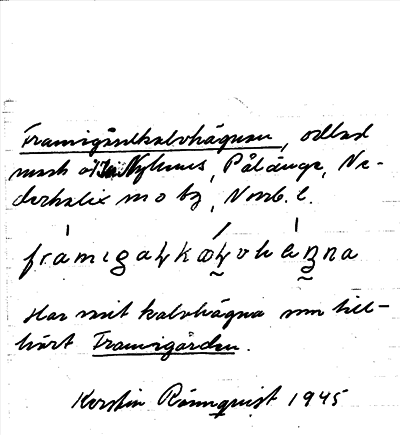 Framigårdkalvhägnan, odlad
mark å Nyhms, Pålänge, Ne-
derkalix sn o bg, Norrb. l.
frámigaɥkæɥvhäŋna
Har varit kalvhägna som till-
hört Framigården.
Kerstin Rönnquist 1945